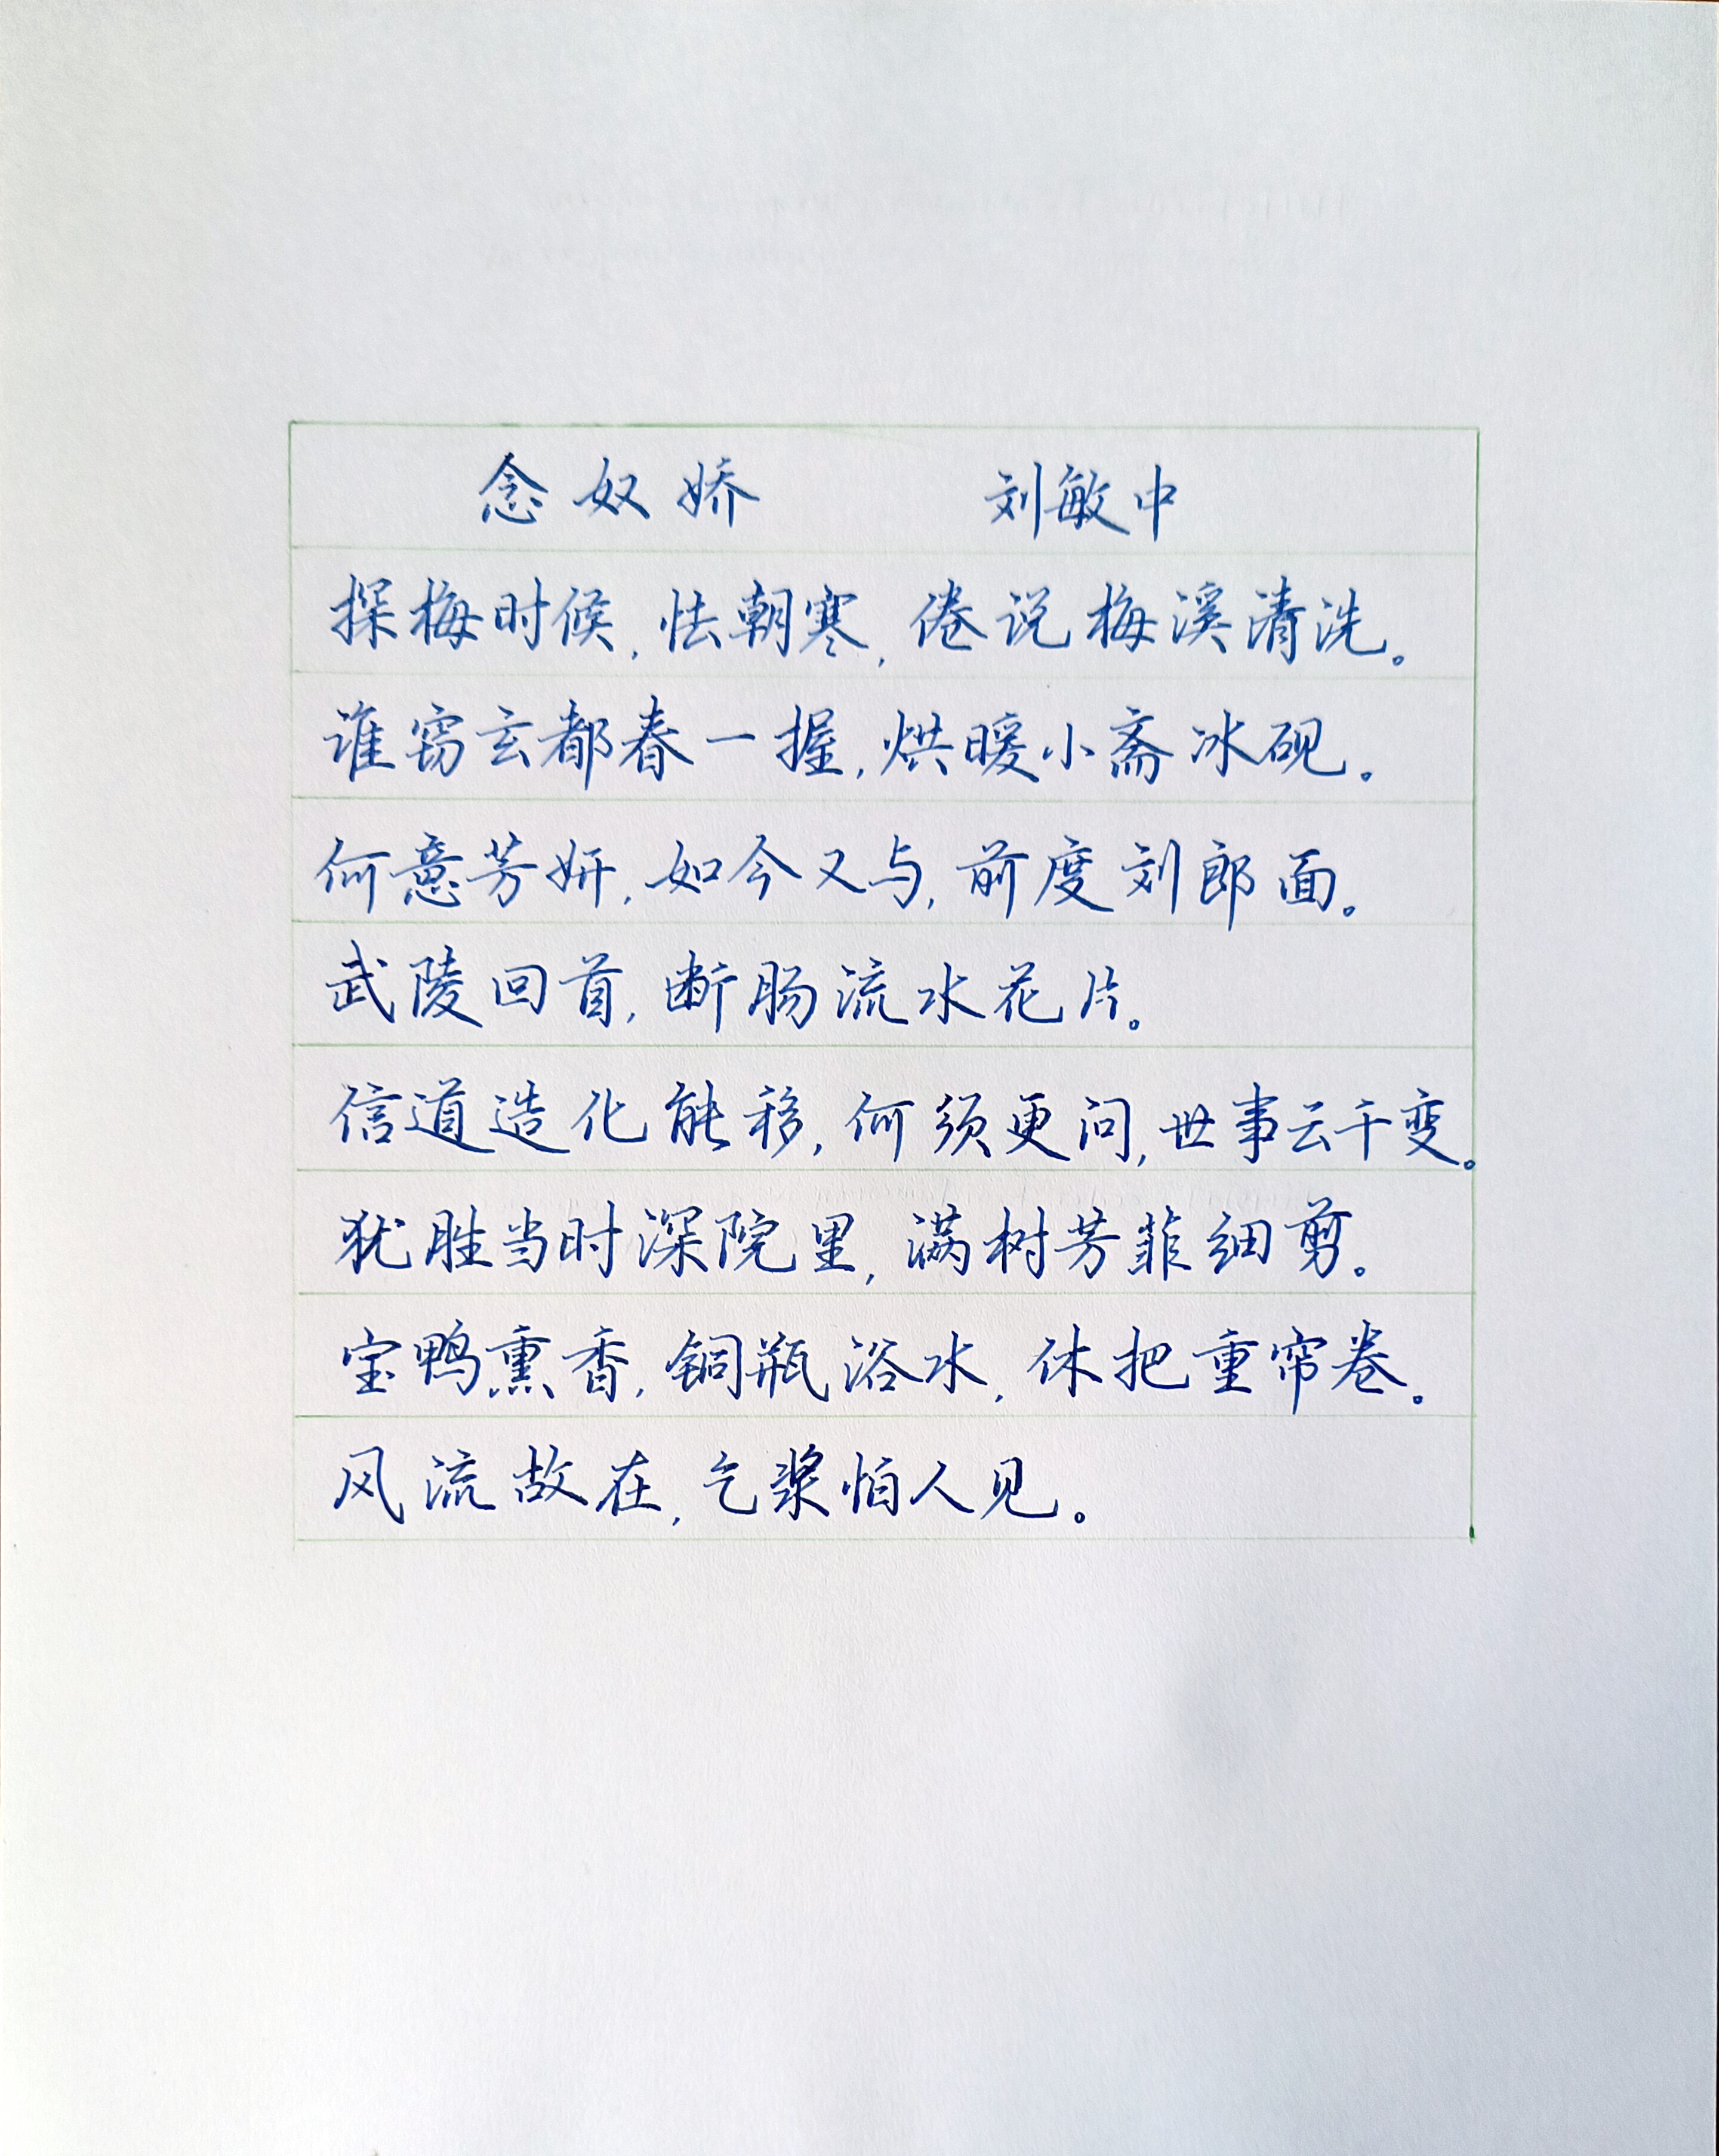 念奴娇 刘敏中
探梅时候，怯朝寒，倦说梅溪清洗。
谁窃玄都春一握，烘暖小斋冰砚。
何意芳妍，如今又与，前度刘郎面。
武陵回首，断肠流水花片。
信道造化能移，何须更问，世事云千变。
犹胜当时深院里，满树芳菲细剪。
宝鸭熏香，铜瓶浴水，休把重帘卷。
风流故在，乞浆怕人见。